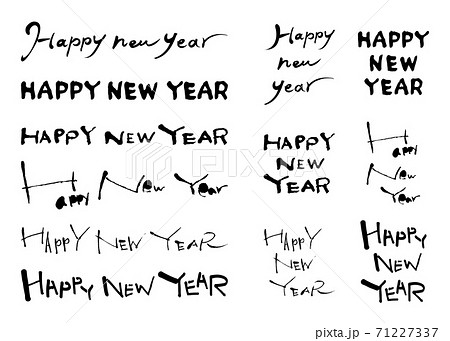 Happy new year
HAPPY NEW YEAR
HAPPY NEW YEAR
Happy New Year
HAPPY NEW YEAR
HAPPY NEW YEAR
Happy
new
year
HAPPY
NEW
YEAR
HAPPY
NEW
YEAR
Happy
New
Year
HAPPY
NEW
YEAR
HAPPY
NEW
YEAR
PIXTA
pixta.jp - 71227337